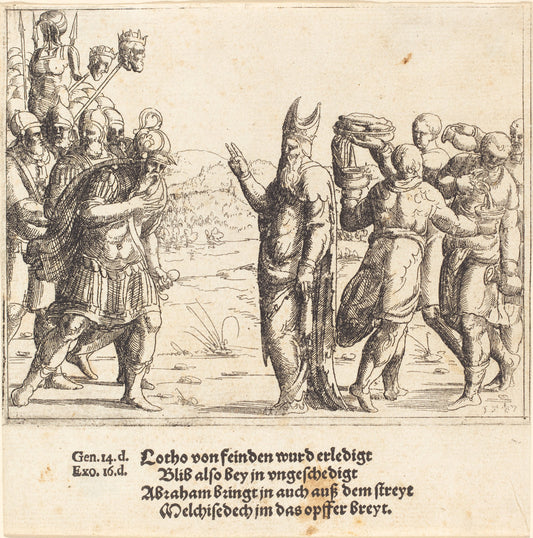 Gen. 14. d.
Exo. 16. d.
Lotho von feinden wurd erledigt
Blib also bey jn vngeschedigt
Abraham bringt jn auch auß dem streyt
Melchisedech jm das opffer breyt.